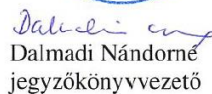 Dalmadi Nándorné
jegyzőkönyvvezető